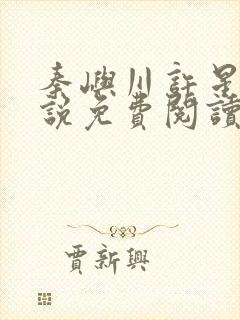 秦嶼川許是
說免費閱讀
賈新興